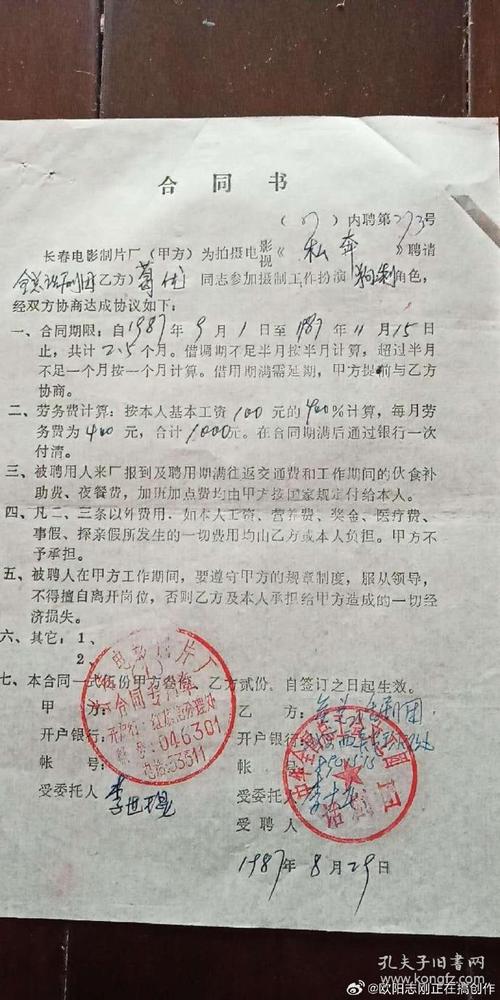 合同书
(87)内聘第273号
长春电影制片厂(甲方)为拍摄电影视《私奔》聘请
全总话剧团(乙方)葛优同志参加摄制工作扮演狗剩角色,
经双方协商达成协议如下:
一、合同期限:自1987年9月1日至1987年11月15日
止,共计2.5个月。借调期不足半月按半月计算,超过半月
不足一个月按一个月计算。借用期满需延期,甲方提前与乙方
协商。
二、劳务费计算:按本人基本工资100元的400%计算,每月劳
务费为400元,合计1000元。在合同期满后通过银行一次
付清。
三、被聘用人来厂报到及聘用期满往返交通费和工作期间的伙食补
助费、夜餐费,加班加点费均由甲方按国家规定付给本人。
四、凡二、三条以外费用,如本人工资、营养费、奖金、医疗费、
事假、探亲假所发生的一切费用均由乙方或本人负担。甲方不
予承担。
五、被聘人在甲方工作期间,要遵守甲方的规章制度,服从领导,
不得擅自离开岗位,否则乙方及本人承担给甲方造成的一切经
济损失。
六、其它:1、
2、
七、本合同一式伍份甲方叁份,乙方贰份,自签订之日起生效。
甲方: 乙方:全总话剧团
开户银行: 开户银行:
帐号: 帐号:
受委托人 李世 受委托人 李
受聘人
1987年8月29日
电影制片厂
合同专用章
046301
电话:53311
话剧团
孔夫子旧书网
kongfz.com
@欧阳志刚正在搞创作